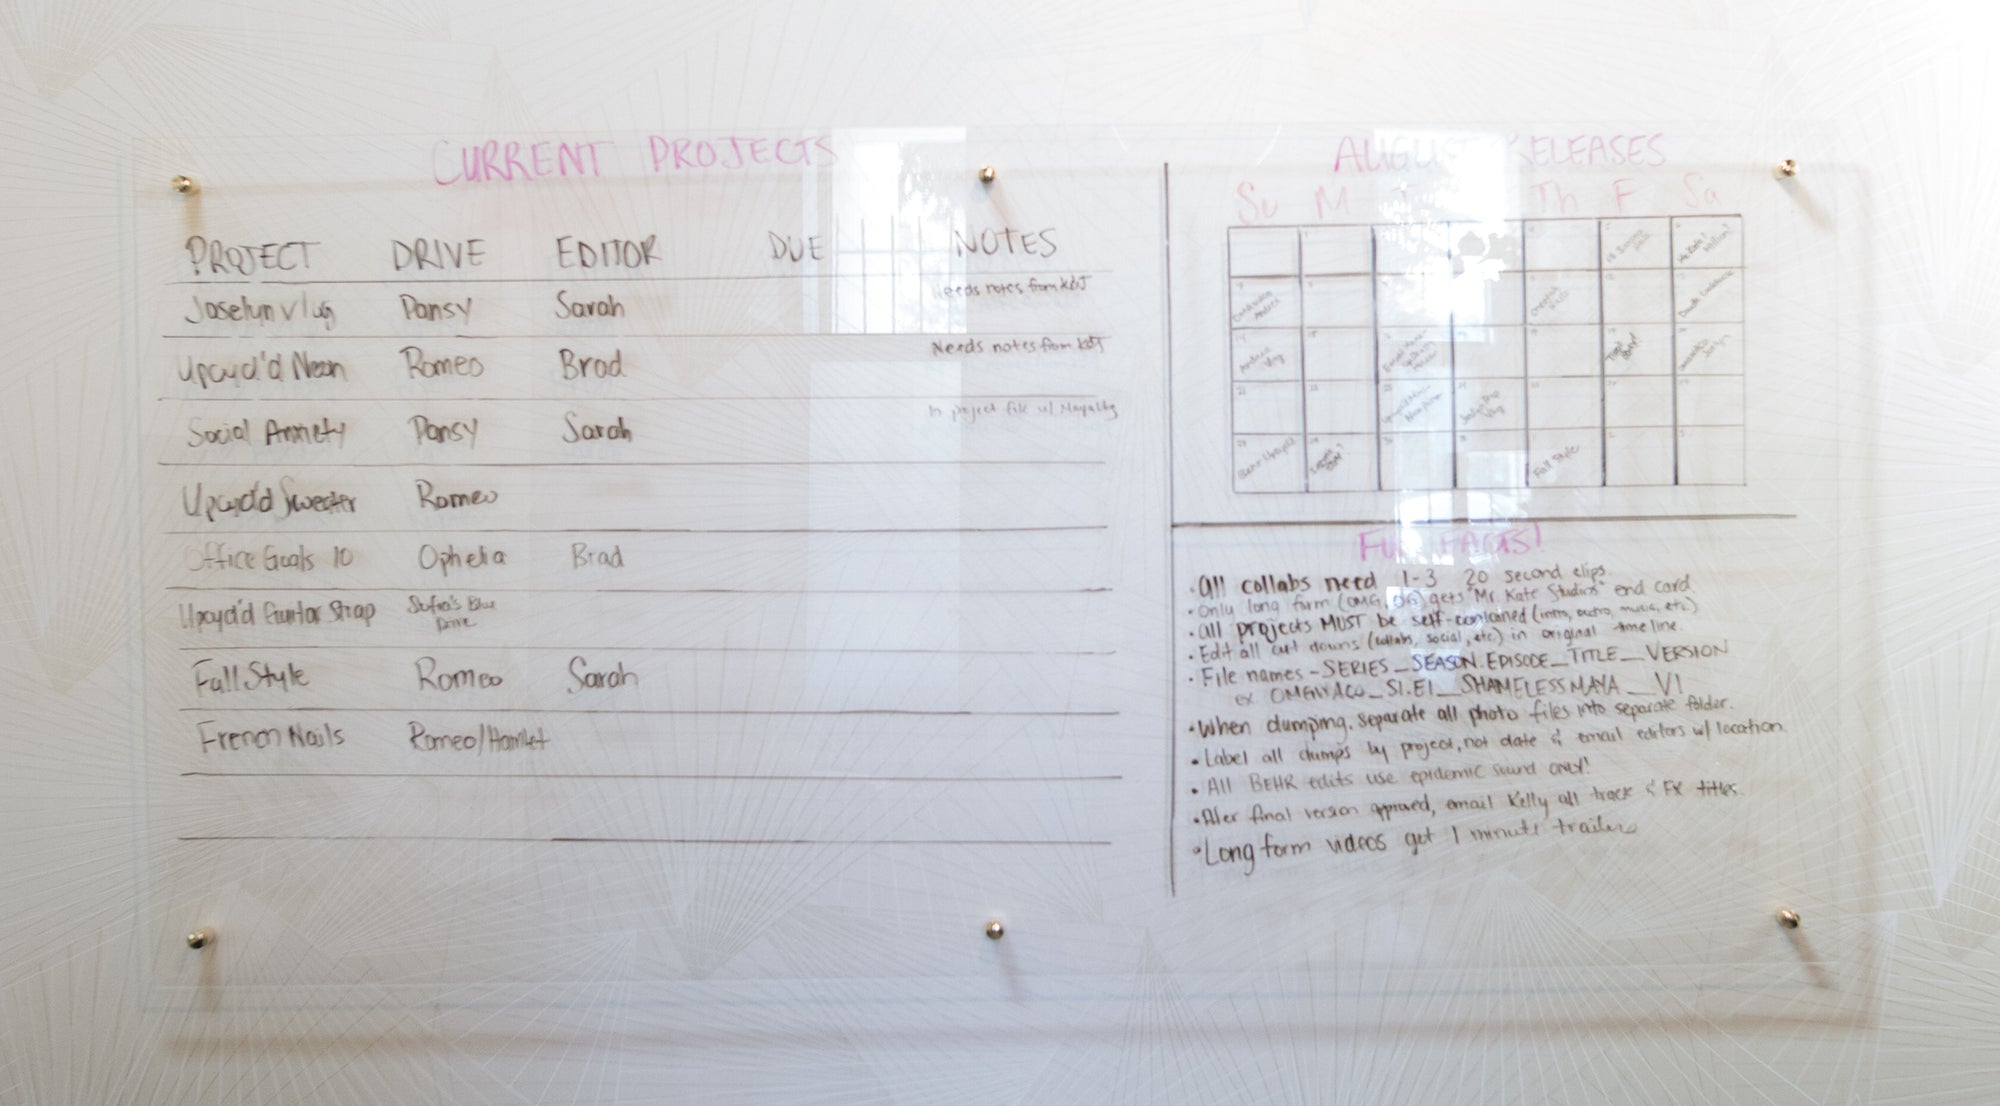 CURRENT PROJECTS
PROJECT DRIVE EDITOR DUE NOTES
Joselyn vlog Pansy Sarah Needs notes from K&J
Upcycl'd Neon Romeo Brad Needs notes from K&J
Social Anxiety Pansy Sarah In project file w/
Upcycl'd Sweater Romeo
Office Goals 10 Ophelia Brad
Upcycl'd Guitar Strap Sofia's Blue
Drive
Fall Style Romeo Sarah
French Nails Romeo/Hamlet
AUGUST RELEASES
Su M T Th F Sa
Andrea
Vlog
Behr Upcycl'd
Fall Style
FUN FACTS!
• All collabs need 1-3 20 second clips.
• Only long form (OMG, OG) gets "Mr. Kate Studios" end card.
• All projects MUST be self-contained (intro, outro, music, etc)
• Edit all cut downs (collabs, social, etc) in original timeline.
• File names - SERIES_SEASON.EPISODE_TITLE_VERSION
ex OMGWACO_S1.E1_SHAMELESSMAYA_V1
• When dumping, separate all photo files into separate folder.
• Label all dumps by project, not date & email editors w/ location.
• All BEHR edits use epidemic sound ONLY!
• After final version approved, email Kelly all track & FX titles.
• Long form videos get 1 minute trailers